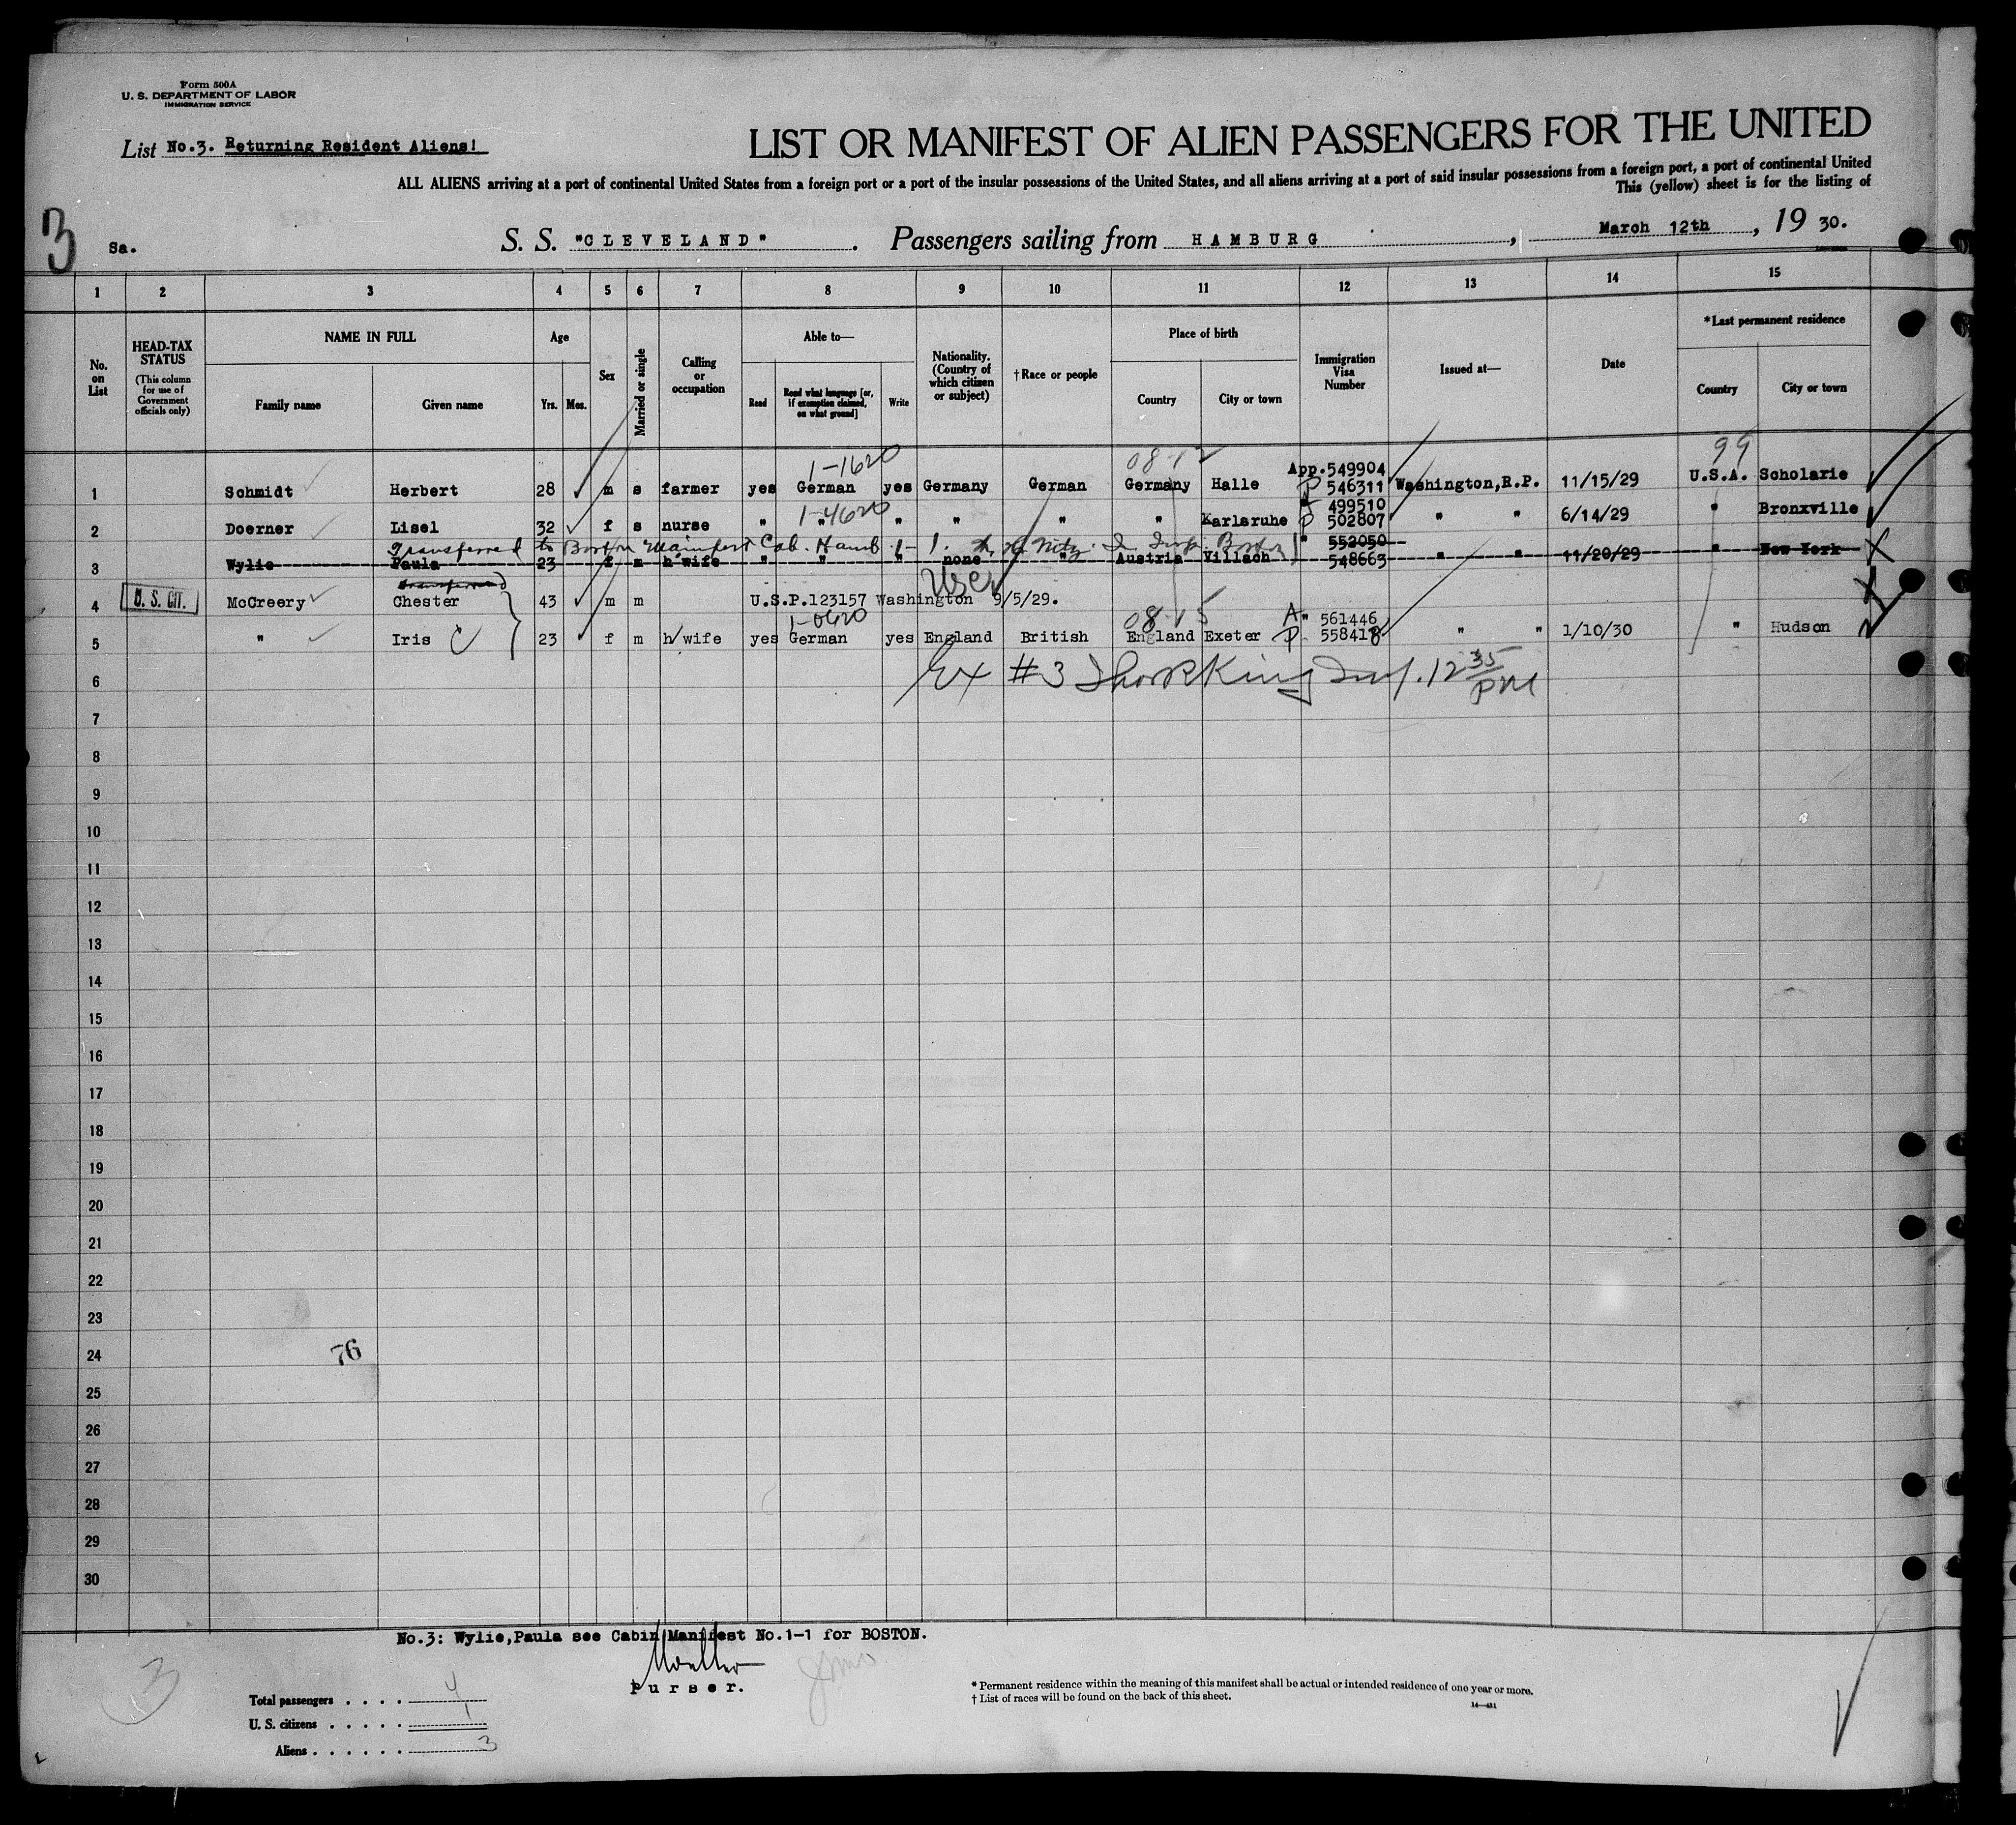 Form 500A
U. S. DEPARTMENT OF LABOR
IMMIGRATION SERVICE
List No.3. Returning Resident Aliens!
LIST OR MANIFEST OF ALIEN PASSENGERS FOR THE UNITED
ALL ALIENS arriving at a port of continental United States from a foreign port or a port of the insular possessions of the United States, and all aliens arriving at a port of said insular possessions from a foreign port, a port of continental United
This (yellow) sheet is for the listing of
3 Sa. S. S. "CLEVELAND". Passengers sailing from HAMBURG, March 12th, 19 30.
1 2 3 4 5 6 7 8 9 10 11 12 13 14 15
No. on List
HEAD-TAX STATUS (This column for use of Government officials only)
NAME IN FULL
Family name Given name
Age
Yrs. Mos.
Sex
Married or single
Calling or occupation
Able to—
Read Read what language [or, if exemption claimed, on what ground] Write
Nationality. (Country of which citizen or subject)
†Race or people
Place of birth
Country City or town
Immigration Visa Number
Issued at—
Date
*Last permanent residence
Country City or town
1-1620 08-12 99
App.549904
1 Schmidt Herbert 28 m s farmer yes German yes Germany German Germany Halle P 546311 Washington,R.P. 11/15/29 U.S.A. Scholarie
1-4620 A 499510
2 Doerner Lisel 32 f s nurse " " " " " " Karlsruhe P 502807 " " 6/14/29 " Bronxville
Transferred to Boston Manifest Cab. Hamb 1-1. Boston " 552050
3 Wylie Paula 23 f m h'wife " " " none " Austria Villach 548663 " " 11/20/29 " New York
transferred USC
4 U. S. CIT. McCreery Chester 43 m m U.S.P.123157 Washington 9/5/29.
1-0620 08-15 A " 561446
5 " Iris C 23 f m h'wife yes German yes England British England Exeter P 558418 " " 1/10/30 " Hudson
6 Ex #3 King Insp. 12 35 PM
7
8
9
10
11
12
13
14
15
16
17
18
19
20
21
22
23
24 76
25
26
27
28
29
30
No.3: Wylie,Paula see Cabin Manifest No.1-1 for BOSTON.
Purser.
3
Total passengers . . . . 4
U. S. citizens . . . . . 1
Aliens . . . . . . 3
* Permanent residence within the meaning of this manifest shall be actual or intended residence of one year or more.
† List of races will be found on the back of this sheet.
14—431